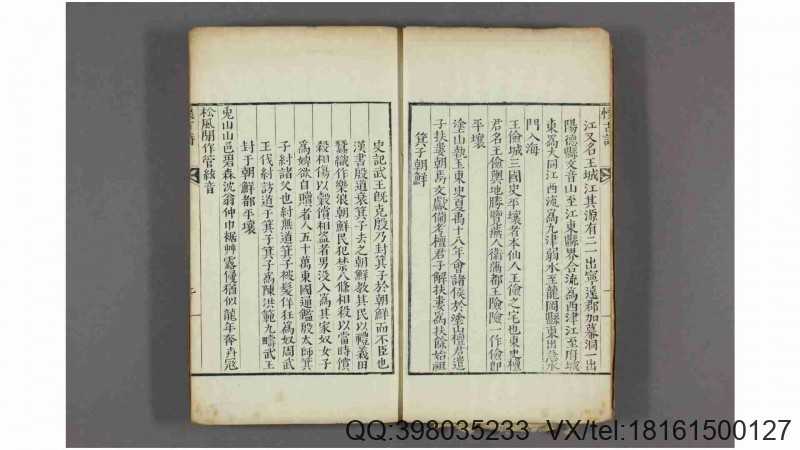 江又名王城江其源有二一出寧遠郡加幕洞一出
陽德縣文音山至江東縣界合流爲西津江至府城
東爲大同江西流爲九津弱水至龍岡縣東出急水
門入海
王儉城三國史平壤者本仙人王儉之宅也東史檀
君名王儉輿地勝覽燕人衛滿都王險險一作儉卽
平壤
塗山執玉東史夏禹十八年會諸侯於塗山檀君遣
子扶婁朝焉文獻備考檀君子解扶婁爲扶餘始祖
箕子朝鮮
史記武王旣克殷乃封箕子於朝鮮而不臣也
漢書殷道衰箕子去之朝鮮敎其民以禮義田
蠶織作樂浪朝鮮民犯禁八條相殺以當時償
殺相傷以穀償相盜者男沒入爲其家奴女子
爲婢欲自贖者人五十萬東國通鑑殷太師箕
子紂諸父也紂無道箕子被髮佯狂爲奴周武
王伐紂訪道于箕子箕子爲陳洪範九疇武王
封于朝鮮都平壤
兎山山色碧森沈翁仲巾裾艸露侵猶似龍年奔卉寇
松風閒作管絃音
QQ:398035233 VX/tel:18161500127